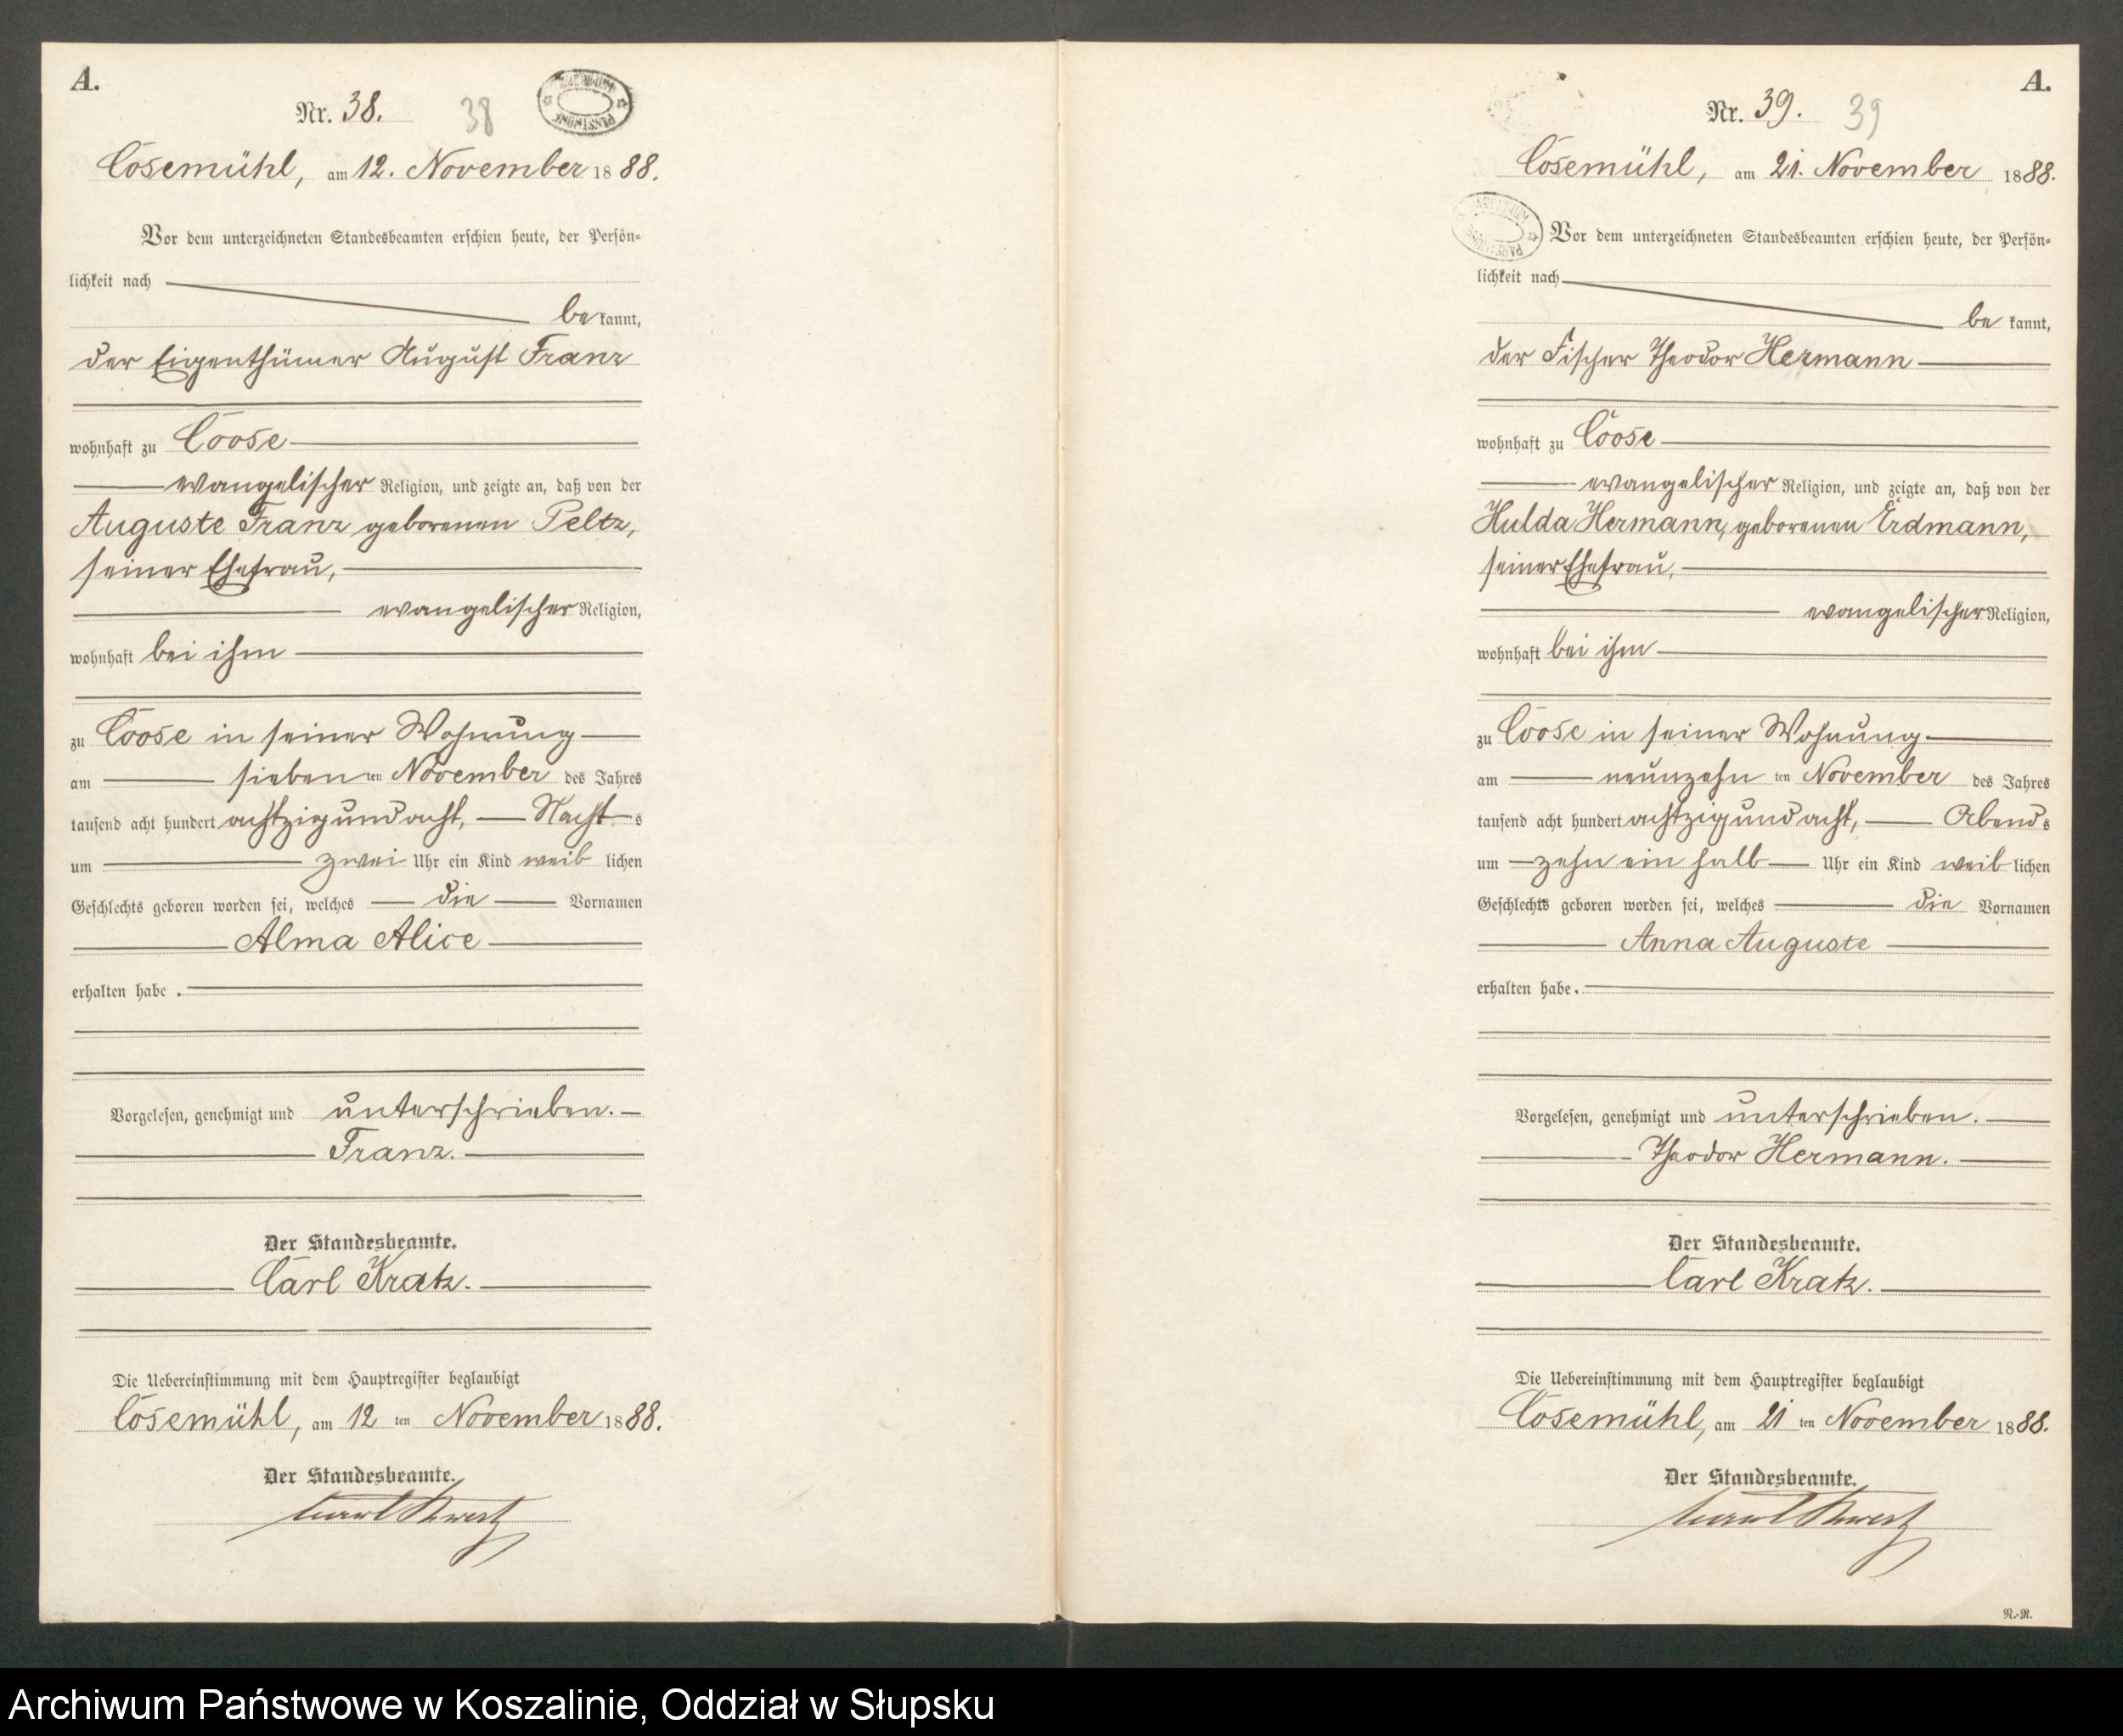 A.
Nr. 38. 38
ARCHIWUM PAŃSTWOWE
Cösemühl, am 12. November 1888.
Vor dem unterzeichneten Standesbeamten erschien heute, der Persön-
lichkeit nach
bekannt,
der Eigenthümer August Franz
wohnhaft zu Coose
evangelischer Religion, und zeigte an, daß von der
Auguste Franz geborenen Peltz,
seiner Ehefrau,
evangelischer Religion,
wohnhaft bei ihm
zu Coose in seiner Wohnung
am siebenten November des Jahres
tausend acht hundert achtzigundacht, Nachts
um zwei Uhr ein Kind weiblichen
Geschlechts geboren worden sei, welches die Vornamen
Alma Alice
erhalten habe.
Vorgelesen, genehmigt und unterschrieben.
Franz.
Der Standesbeamte.
Carl Kratz.
Die Uebereinstimmung mit dem Hauptregister beglaubigt
Cösemühl, am 12ten November 1888.
Der Standesbeamte.
Carl Kratz
A.
Nr. 39. 39
Cösemühl, am 21. November 1888.
ARCHIWUM PAŃSTWOWE
Vor dem unterzeichneten Standesbeamten erschien heute, der Persön-
lichkeit nach
bekannt,
der Fischer Theodor Hermann
wohnhaft zu Coose
evangelischer Religion, und zeigte an, daß von der
Hulda Hermann, geborenen Erdmann,
seiner Ehefrau,
evangelischer Religion,
wohnhaft bei ihm
zu Coose in seiner Wohnung
am neunzehnten November des Jahres
tausend acht hundert achtzigundacht, Abends
um zehn ein halb Uhr ein Kind weiblichen
Geschlechts geboren worden sei, welches die Vornamen
Anna Auguste
erhalten habe.
Vorgelesen, genehmigt und unterschrieben.
Theodor Hermann.
Der Standesbeamte.
Carl Kratz.
Die Uebereinstimmung mit dem Hauptregister beglaubigt
Cösemühl, am 21ten November 1888.
Der Standesbeamte.
Carl Kratz
N.-R.
Archiwum Państwowe w Koszalinie, Oddział w Słupsku